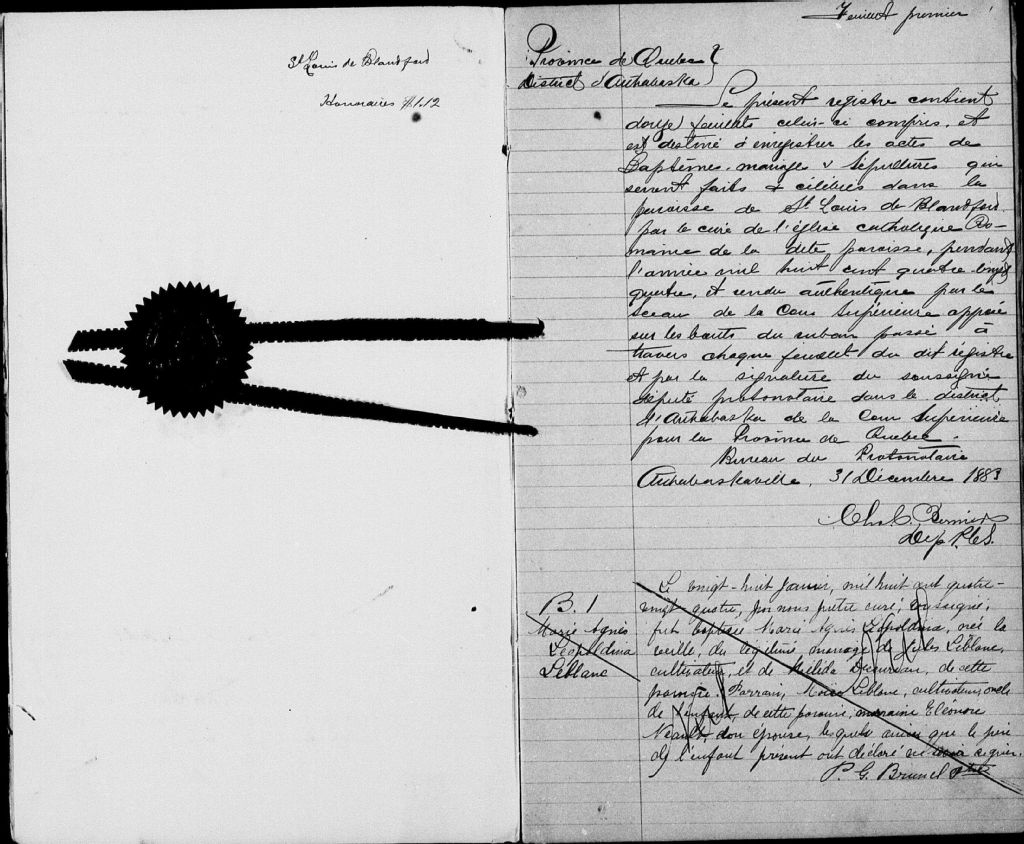 St Louis de Blandford
Honoraires $1.12
Feuillet premier
Province de Quebec
District d'Arthabaska
Le présent registre contient
douze feuillets celui-ci compris, et
est destiné à enregistrer les actes de
Baptêmes, mariages & sépultures qui
seront faits & célébrés dans la
paroisse de St Louis de Blandford
par le curé de l'église catholique Ro-
maine de la dite paroisse, pendant
l'année mil huit cent quatre-vingt
quatre, et rendu authentique par le
sceau de la Cour Supérieure apposé
sur les bouts du ruban passé à
travers chaque feuillet du dit régistre
et par la signature du soussigné
député protonotaire dans le district
d'Arthabaska de la Cour Supérieure
pour la Province de Quebec.
Bureau du Protonotaire
Arthabaskaville, 31 Décembre 1883
Chs C. Bernier
Dep P.C.S.
B. 1
Marie Agnès
Léopoldina
Leblanc
Le vingt-huit Janvier, mil huit cent quatre-
vingt-quatre, par nous prêtre curé, soussigné,
fut baptisée Marie Agnès Léopoldina, née la
veille, du légitime mariage de Jules Leblanc,
cultivateur, et de de cette
paroisse. Parrain, Moïse Leblanc, cultivateur, oncle
de l'enfant, de cette paroisse, marraine Eléonore
Neault, son épouse, lesquels ainsi que le père
de l'enfant présent ont déclaré ne savoir signer.
P. G. Brunel ptre